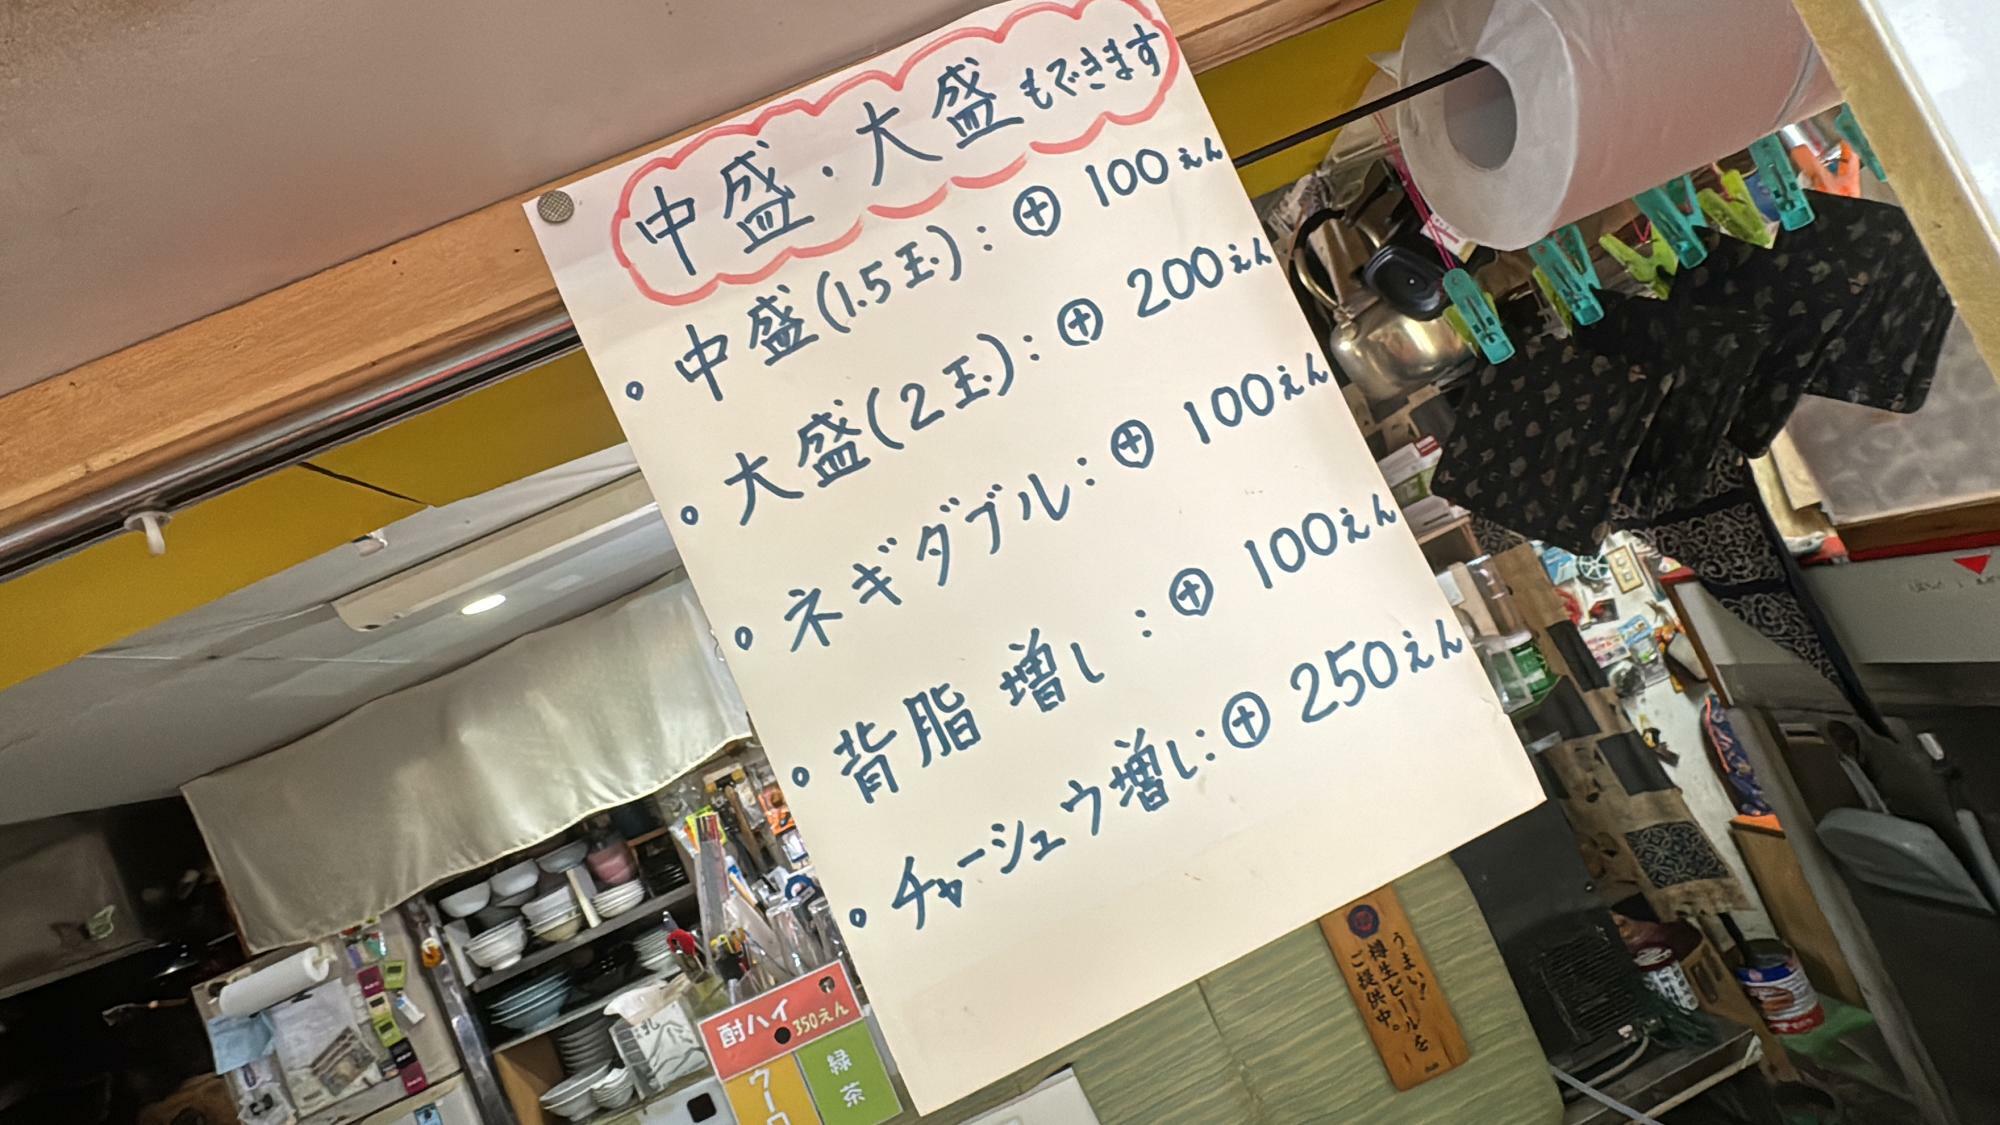 中盛・大盛もできます
・中盛(1.5玉):⊕100えん
・大盛(2玉):⊕200えん
・ネギダブル:⊕100えん
・背脂増し:⊕100えん
・チャーシュウ増し:⊕250えん
うまい!
樽生ビールを
ご提供中。
酎ハイ
350えん
ウーロ
緑茶